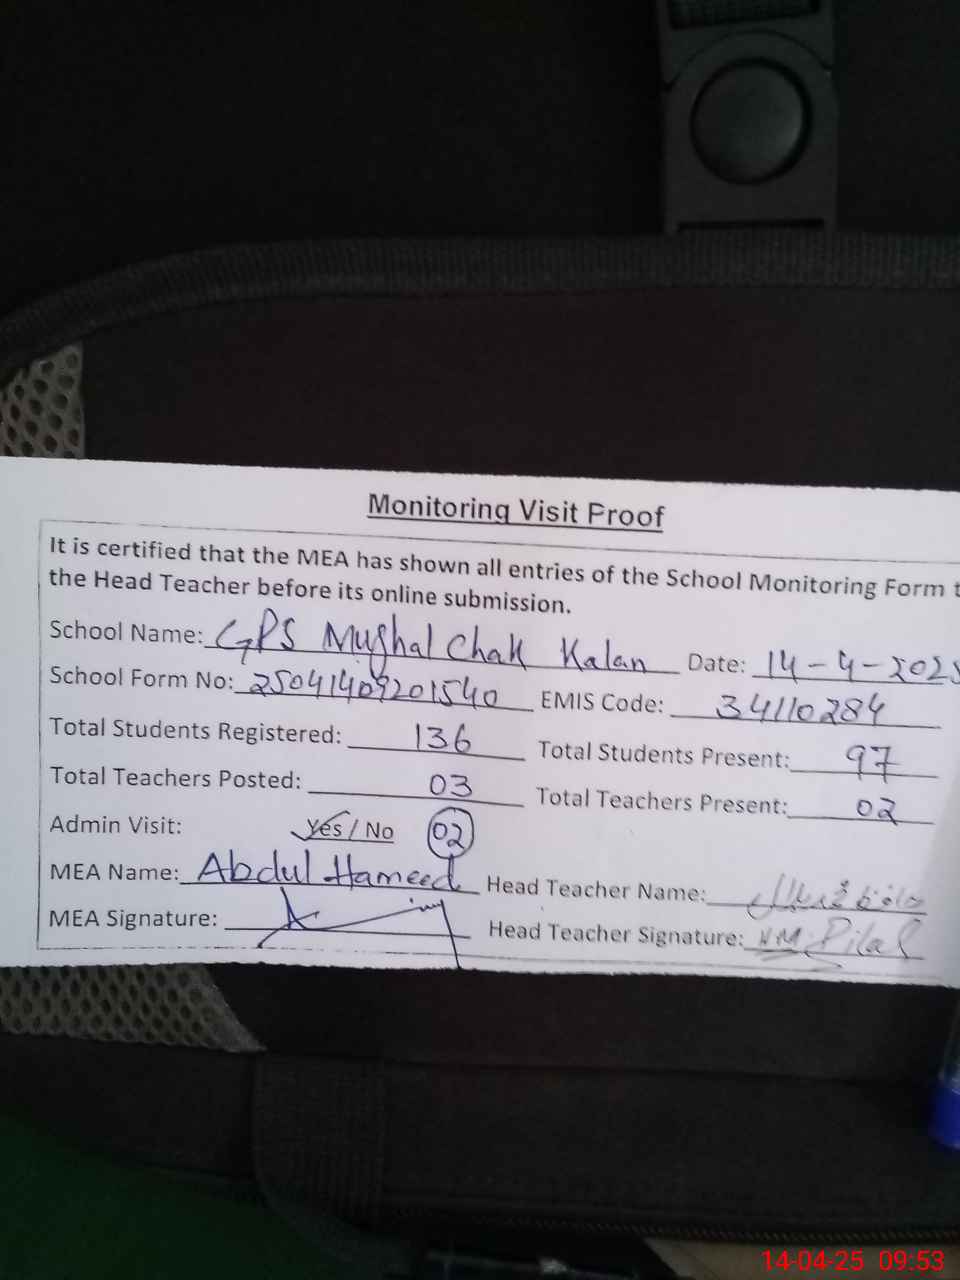 Monitoring Visit Proof
It is certified that the MEA has shown all entries of the School Monitoring Form t
the Head Teacher before its online submission.
School Name: GPS Mughal Chak Kalan Date: 14-4-2025
School Form No: 25041409201540 EMIS Code: 34110284
Total Students Registered: 136 Total Students Present: 97
Total Teachers Posted: 03 Total Teachers Present: 02
Admin Visit: Yes / No 02
MEA Name: Abdul Hameed Head Teacher Name:
MEA Signature: Head Teacher Signature:
14-04-25 09:53